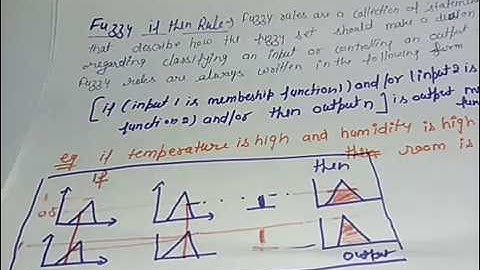 Fuzzy if then Rule→ Fuzzy rules are a collection of stateme
that describe how the fuzzy set should make a
regarding classifying an input or controlling an output
Fuzzy rules are always written in the following form
[if (input 1 is membership function 1) and/or (input 2 is
function 2) and/or then output n] is output
eg if temperature is high and humidity is high
then room is
If
then
0.5
output